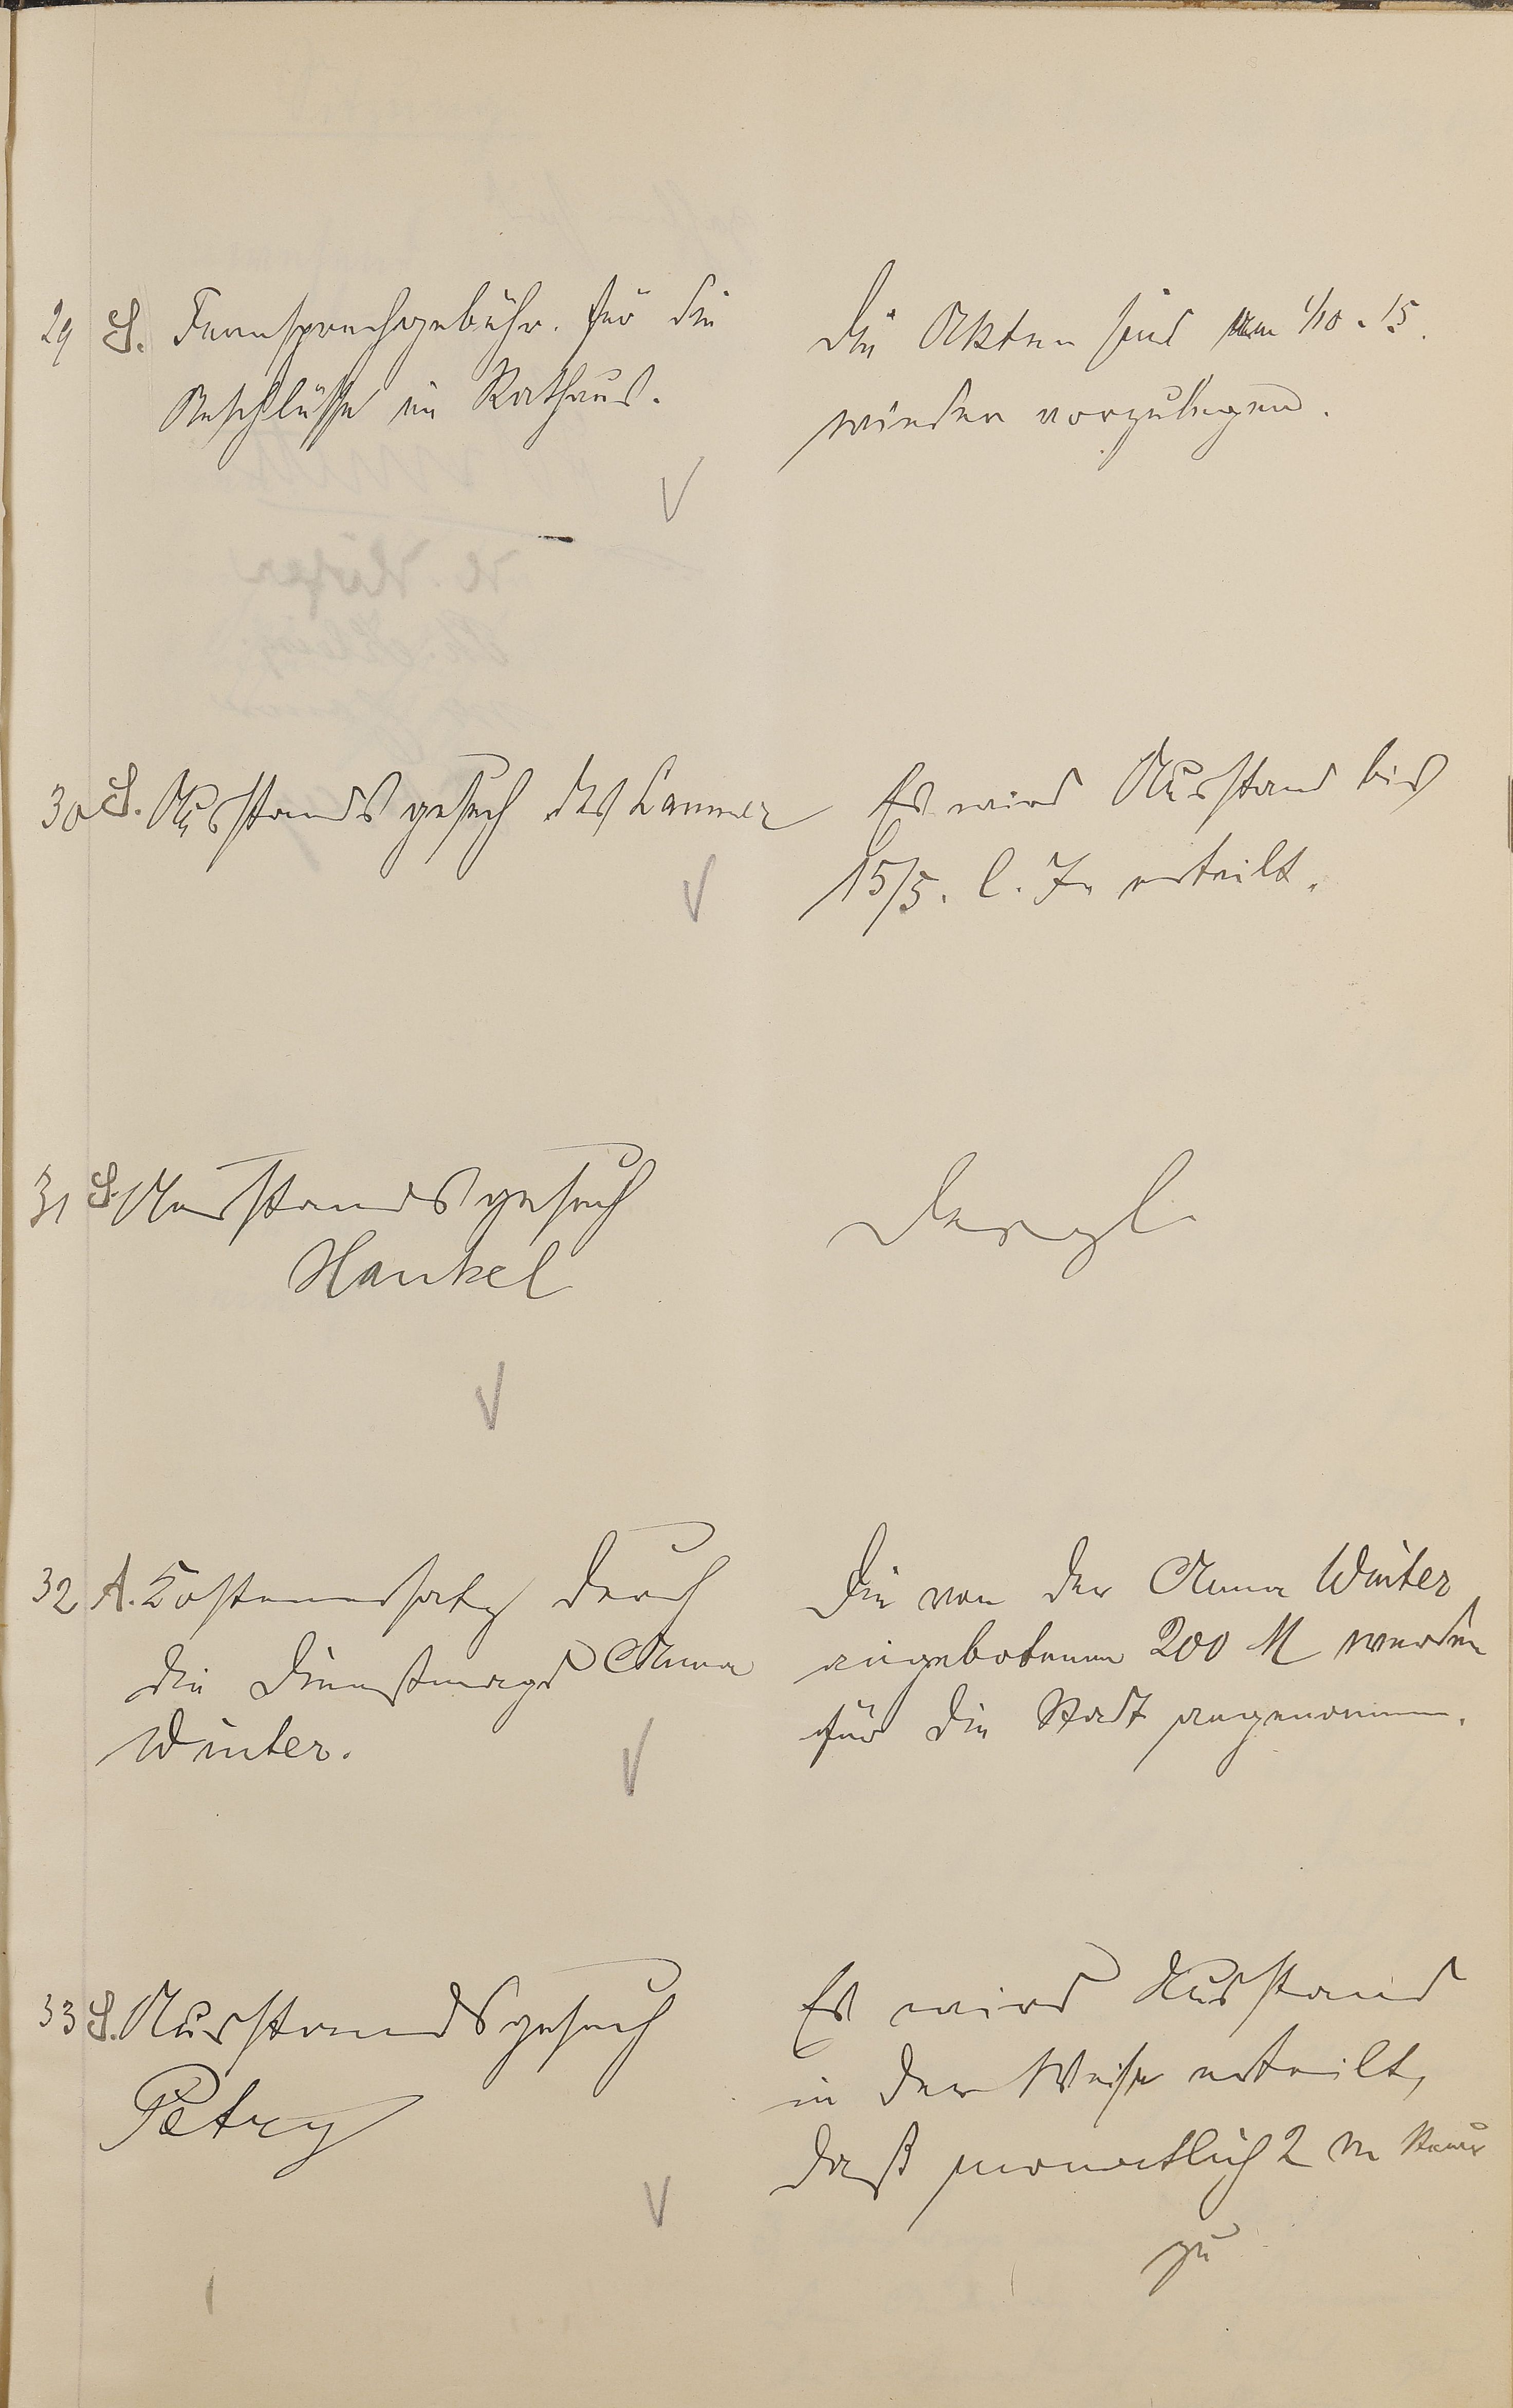 29 S. Fernsprechgebühr. für die
Beschlüsse im Rathaus.
Die Akten sind am 1/10. 15.
wieder vorzulegen.
30 S. Ausstandsgesuch des Lammer
Es wird Ausstand bis
15/5. l. Js. erteilt.
31 S. Ausstandsgesuch
Hankel
Dergl.
32 A. Kostenersatz durch
die Dienstmagd Anna
Winter.
Die von der Anna Winter
angebotenen 200 M werden
für die Stadt angenommen.
33 S. Ausstandsgesuch
Petry
Es wird Ausstand
in der Weise erteilt,
daß monatlich 2 M
zu